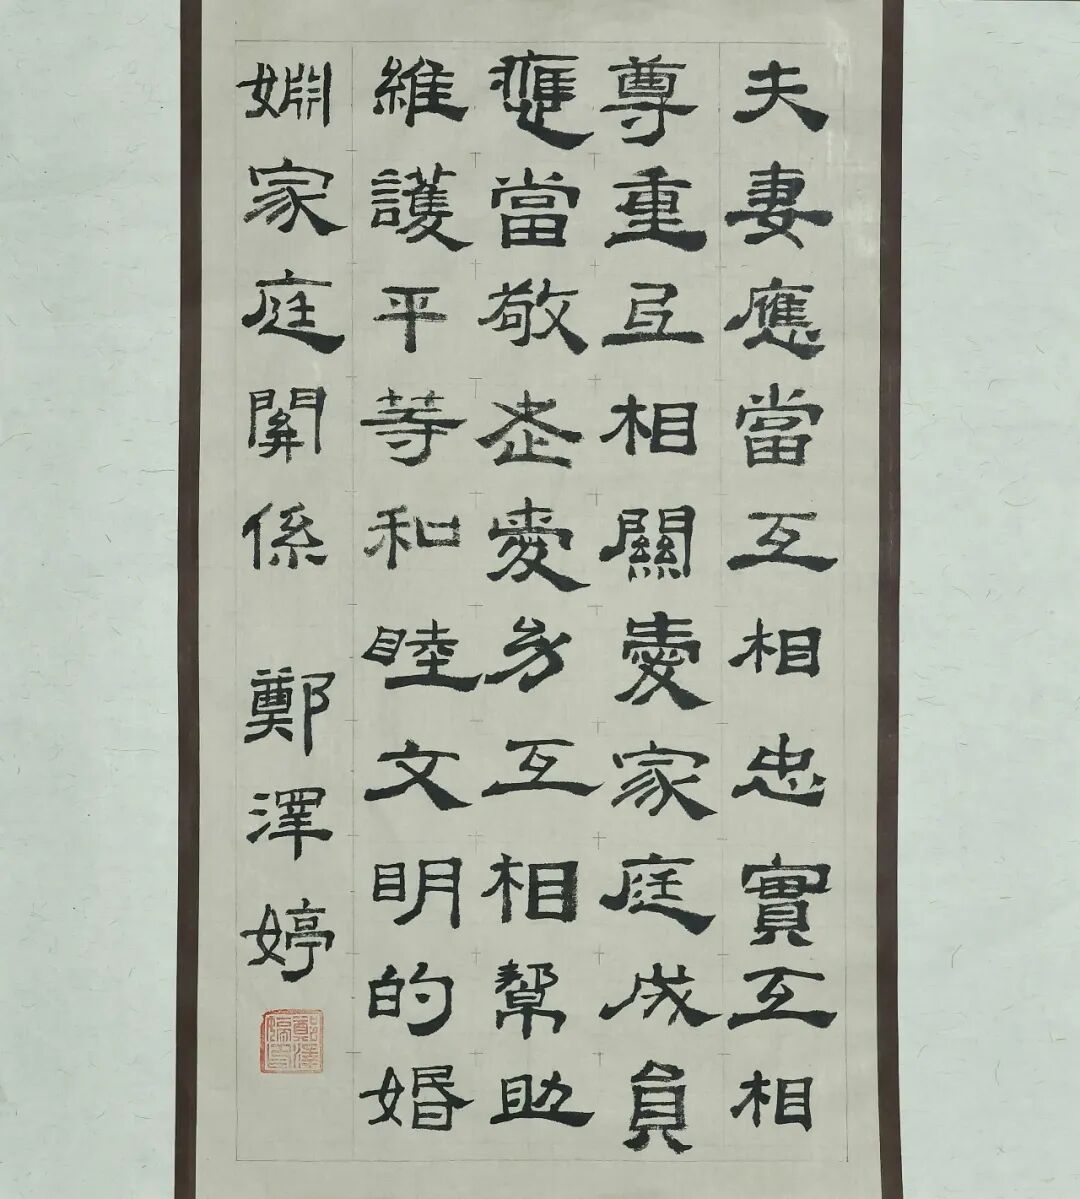 夫妻應當互相忠實互相
尊重互相關愛家庭成員
應當敬老愛幼互相幫助
維護平等和睦文明的婚
婣家庭關係 鄭澤婷
鄭澤婷印